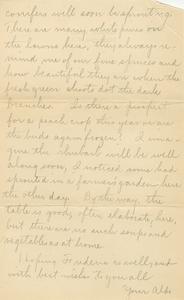 conifers will soon be sprouting.
There are many white pines on
the lawns here, they always re-
mind me of our fine spruces and
how beautiful they are when the
fresh green shoots dot the dark
branches. Is there a prospect
for a peach crop this year or are
the buds again frozen? I ima-
gine the rhubarb will be well
along soon, I noticed some had
sprouted in a farmer's garden here
the other day. By the way, the
table is good, often elaborate, here,
but there are no such soups and
vegetables as at home.
Hoping Frederic is well, and
with best wishes to you all
Your